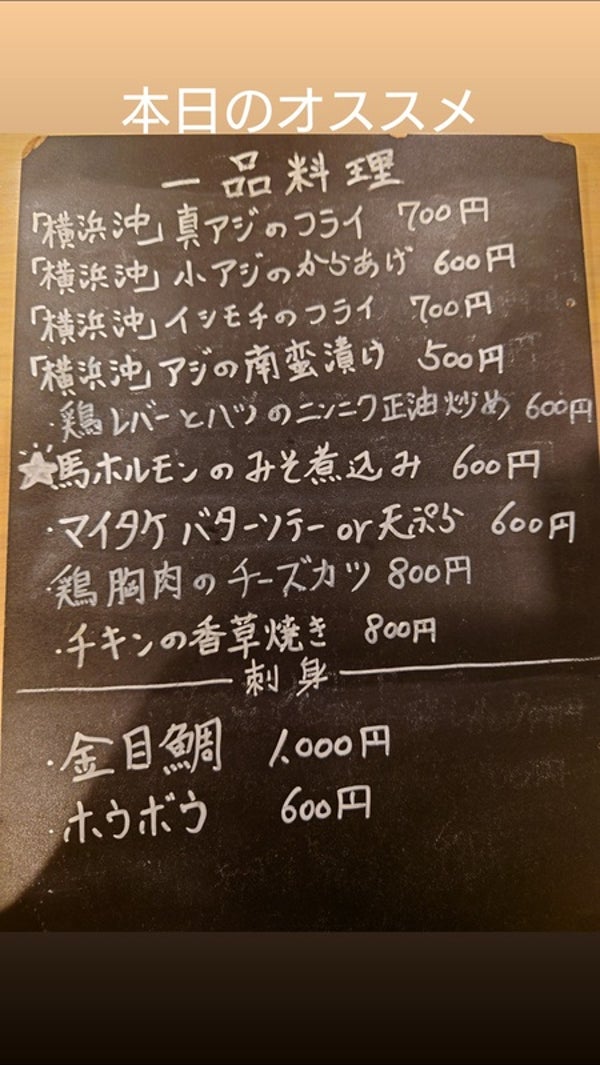 本日のオススメ
一品料理
「横浜沖」真アジのフライ 700円
「横浜沖」小アジのからあげ 600円
「横浜沖」イシモチのフライ 700円
「横浜沖」アジの南蛮漬け 500円
・鶏レバーとハツのニンニク正油炒め 600円
★馬ホルモンのみそ煮込み 600円
・マイタケバターソテーor天ぷら 600円
・鶏胸肉のチーズカツ 800円
・チキンの香草焼き 800円
刺身
・金目鯛 1.000円
・ホウボウ 600円